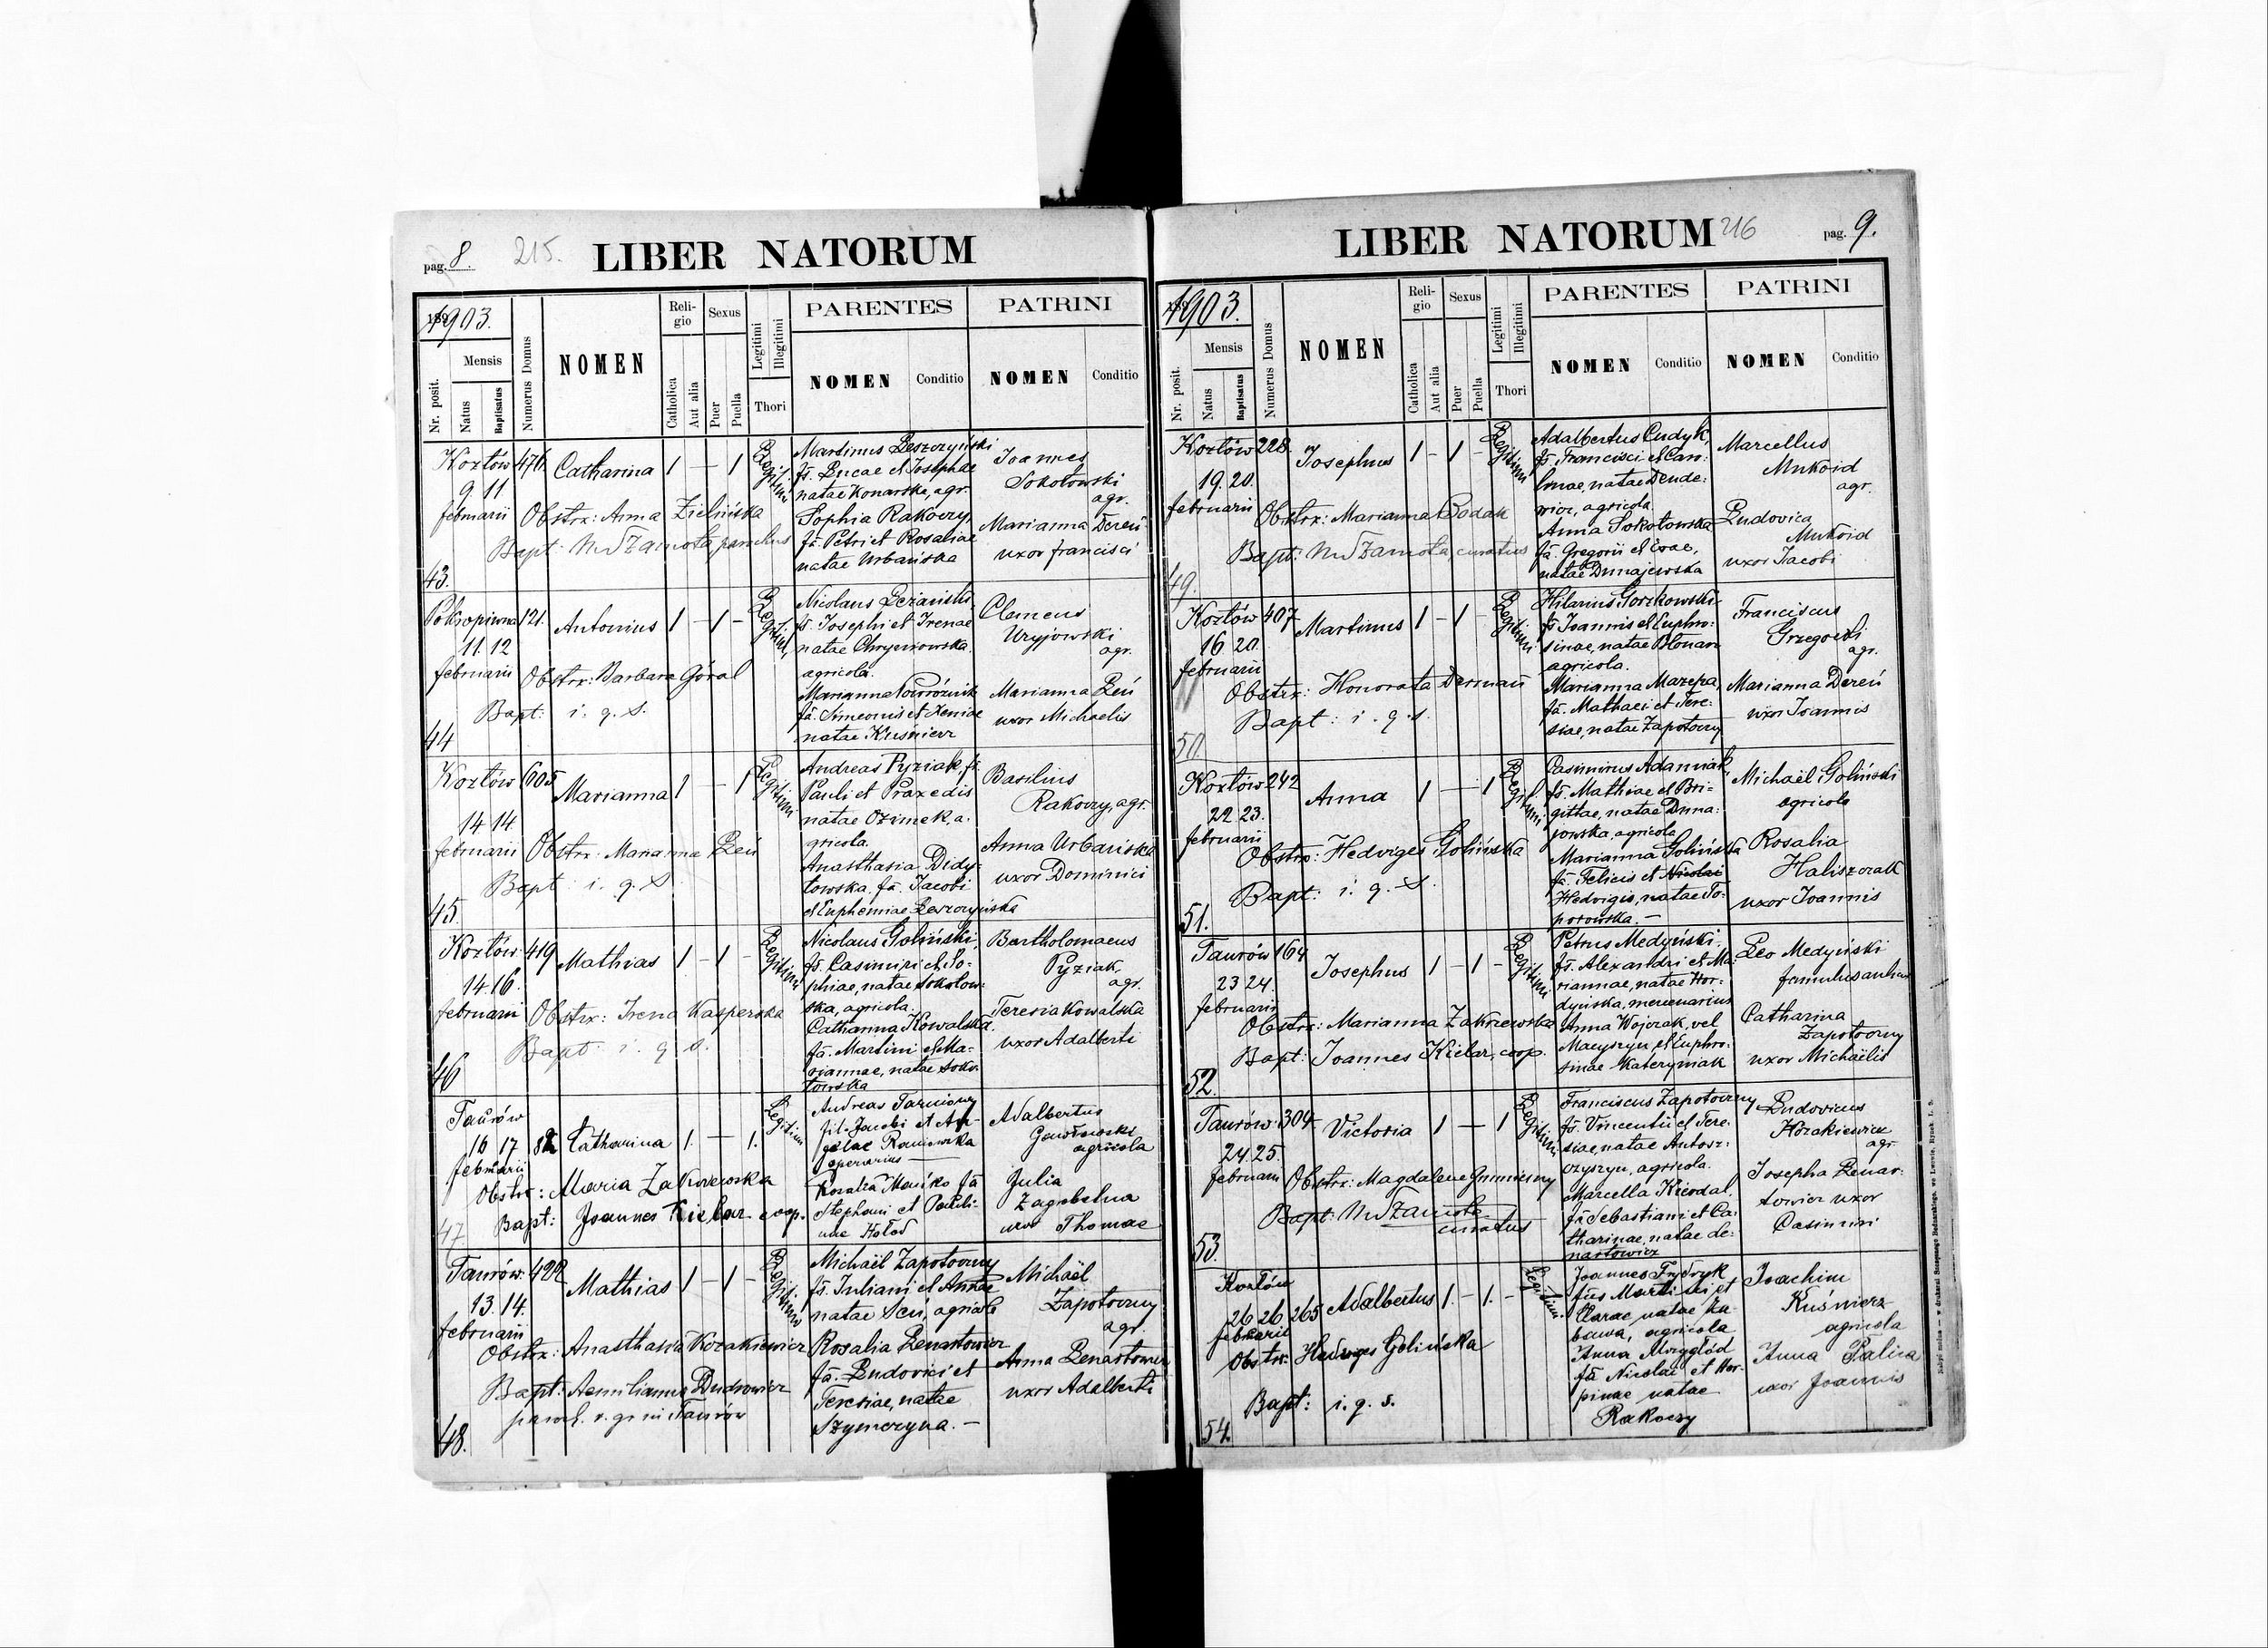 pag. 8.
215.
LIBER NATORUM
1903.
Mensis
Nr. posit.
Natus
Baptisatus
Numerus Domus
NOMEN
Religio
Catholica
Aut alia
Sexus
Puer
Puella
Legitimi
Illegitimi
Thori
PARENTES
NOMEN
Conditio
PATRINI
NOMEN
Conditio
Kozłów 476. Catharina 1 — 1 Legitimi
9 11
februarii
Obstrx: Anna Zielińska
Bapt: Zamota parochus
43.
Martinus Leszczyński
fs. Lucae et Josephae
natae Konarska, agr.
Sophia Rakoczy,
fa. Petri et Rosaliae
natae Urbańska
Joannes
Sokołowski
agr.
Marianna Dereń
uxor francisci
Pokropiwna 121. Antonius 1 — 1 — Legitimi
11. 12
februarii
Obstrx: Barbara Góral
Bapt: i. q. s.
44
Nicolaus Leżański,
fs. Josephi et Irenae
natae
agricola.
Marianna Powróźnik
fa. Simeonis et Xeniae
natae Kuśnierz
Clemens
agr.
Marianna Leń
uxor Michaelis
Kozłów 605 Marianna 1 — 1 Legitimi
14 14
februarii
Obstrx: Marianna Leń
Bapt: i. q. s.
45.
Andreas Pyziak, fs.
Pauli et Praxedis
natae Ozimek, a-
gricola.
Anasthasia Didy-
towska, fa. Jacobi
et Euphemiae Leszczyńska
Basilius
Rakoczy, agr.
Anna Urbańska
uxor Dominici
Kozłów 419 Mathias 1 — 1 — Legitimi
14. 16.
februarii
Obstrx: Irena Kasperska
Bapt: i. q. s.
46
Nicolaus Goliński,
fs. Casimiri et So-
phiae, natae Sokołow-
ska, agricola.
Catharina Kowalska
fa. Martini et Ma-
riannae, natae Soko-
łowska
Bartholomaeus
Pyziak,
agr.
Teresia Kowalska
uxor Adalberti
Taurów
16 17 Catharina 1. — 1. Legitimi
februarii
Obstrx: Maria Zakrzewska
Bapt: Joannes Kielar coop.
47
Andreas
fil. Jacobi et An-
gelae
operarius —
Rosalia fa
Stephani et Pauli-
nae Hołod
Adalbertus
agricola
Julia
Zagrobelna
uxor Thomae
Taurów 422 Mathias 1 — 1 — Legitimi
13. 14.
februarii
Obstrx: Anasthasia Kozakiewicz
Bapt: Aemilianus Dudrowicz
paroch. r. gr. in Taurów
48.
Michaël Zapotoczny
fs. Juliani et Annae
natae agricola
Rosalia Lenartowicz
fa. Ludovici et
Teresiae, natae
Szymczyna. —
Michaël
Zapotoczny
agr.
Anna Lenartowicz
uxor Adalberti
LIBER NATORUM
216
pag. 9.
1903.
Mensis
Nr. posit.
Natus
Baptisatus
Numerus Domus
NOMEN
Religio
Catholica
Aut alia
Sexus
Puer
Puella
Legitimi
Illegitimi
Thori
PARENTES
NOMEN
Conditio
PATRINI
NOMEN
Conditio
Kozłów 228. Josephus 1 — 1 — Legitimi
19. 20.
februarii
Obstrx: Marianna Bodak
Bapt: Zamota, curatus
49.
Adalbertus Cudyk,
fs. Francisci et Caro-
linae, natae Dende-
wicz, agricola.
Anna Sokołowska
fa. Gregorii et Evae,
natae Dunajewska
Marcellus
Mukoid
agr.
Ludovica
Mukoid
uxor Jacobi
Kozłów 407 Martinus 1 — 1 — Legitimi
16. 20.
februarii
Obstrx: Honorata Dermań
Bapt: i. q. s.
50.
Hilarius Gorzkowski
fs. Joannis et Euphro-
sinae, natae
agricola.
Marianna Mazepa,
fa. Mathaei et Tere-
siae, natae Zapotoczny
Franciscus
agr.
Marianna Dereń
uxor Joannis
Kozłów 242 Anna 1 — 1 Legitimi
22. 23.
februarii
Obstrx: Hedviges Golińska
Bapt: i. q. s.
51.
Casimirus Adamiak,
fs. Mathiae et Bri-
gittae, natae Duna-
jewska, agricola.
Marianna Golińska
fa. Felicis et Nicolai
Hedvigis, natae To-
porowska. —
Michaël Goliński
agricola
Rosalia
Haliszczak
uxor Joannis
Taurów 164 Josephus 1 — 1 — Legitimi
23 24.
februarii
Obstrx: Marianna Zakrzewska
Bapt: Joannes Kielar, coop.
52.
Petrus Medyński,
fs. Alexandri et Ma-
riannae, natae Hor-
dyńska, mercenarius
Anna Wojczak, vel
Macyszyn, et Euphro-
sinae Kateryniak
Leo Medyński
famulus
Catharina
Zapotoczny
uxor Michaëlis
Taurów 304 Victoria 1 — 1 Legitimi
24. 25.
februarii
Obstrx: Magdalena Gumienny
Bapt: Zamota
curatus
53.
Franciscus Zapotoczny
fs. Vincentii et Tere-
siae, natae Antosz-
czyszyn, agricola.
Marcella
fa Sebastiani et Ca-
tharinae, natae Le-
nartowicz
Ludovicus
Kozakiewicz
agr.
Josepha Lenar-
towicz uxor
Casimiri
Kozłów
26 26 265 Adalbertus 1. — 1. — Legitimi.
februarii
Obstrx: Hedviges Golińska
Bapt: i. q. s.
54.
Joannes Frydryk
fius Martini et
Clarae natae Ka-
bawa, agricola
Anna Mrygłód
fa Nicolai et Hor-
pinae natae
Rakoczy
Joachim
Kuśnierz
agricola
Anna Palica
uxor Joannis